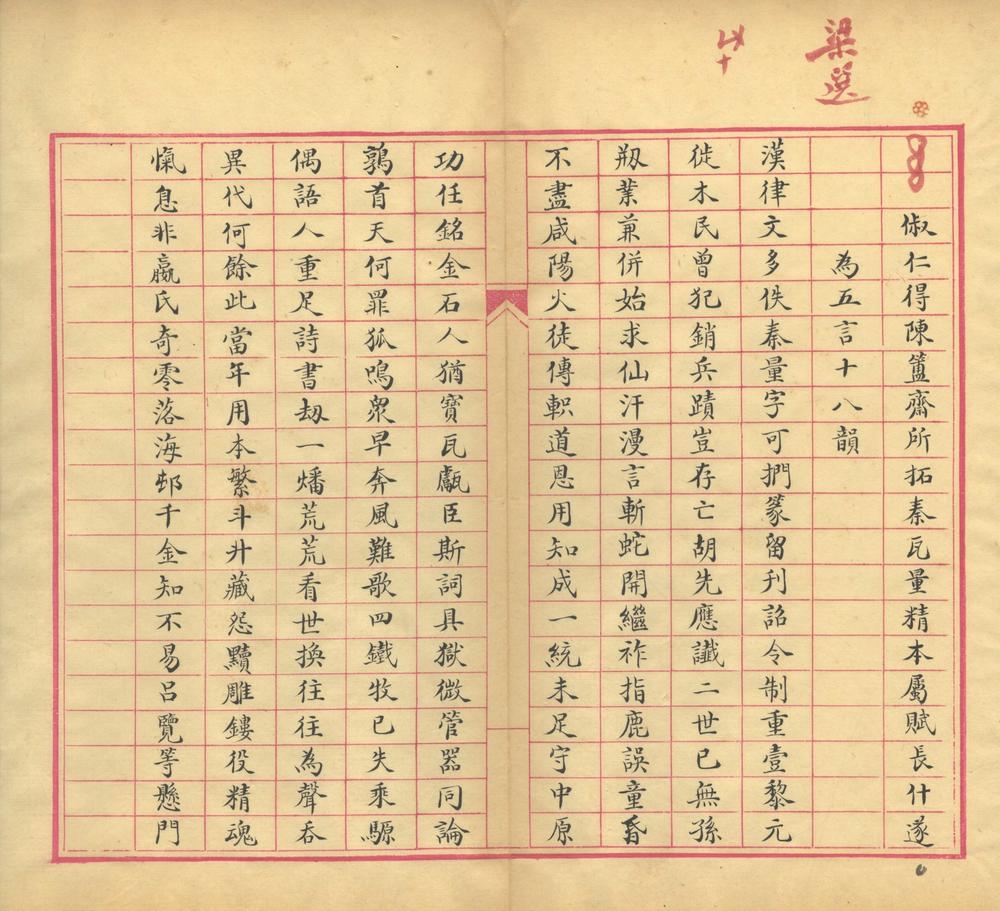 梁選
俶仁得陳簠齋所拓秦瓦量精本屬賦長什遂
為五言十八韻
漢律文多佚秦量字可捫篆留刋詔令制重壹黎元
徙木民曾犯銷兵蹟豈存亡胡先應讖二世已無孫
剏業兼併始求仙汗漫言斬蛇開繼祚指鹿誤童昏
不盡咸陽火徒傳軹道恩用知成一統未足守中原
功任銘金石人猶寶瓦甗臣斯詞具獄微管器同論
鶉首天何罪狐鳴衆早奔風難歌四鐵牧已失乘騵
偶語人重足詩書劫一燔荒荒看世換往往為聲吞
異代何餘此當年用本繁斗升藏怨讟雕鏤役精魂
愾息非嬴氏奇零落海邨千金知不易呂覽等懸門